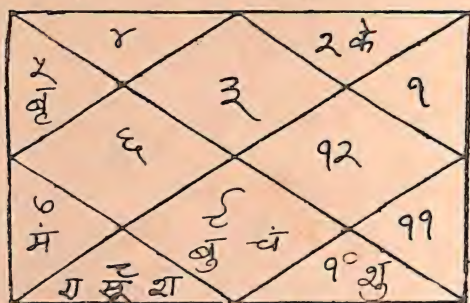 ४
२ के
५
बृ
३
१
६
१२
७
मं
९
बु चं
११
८
रा सू श
१० शु